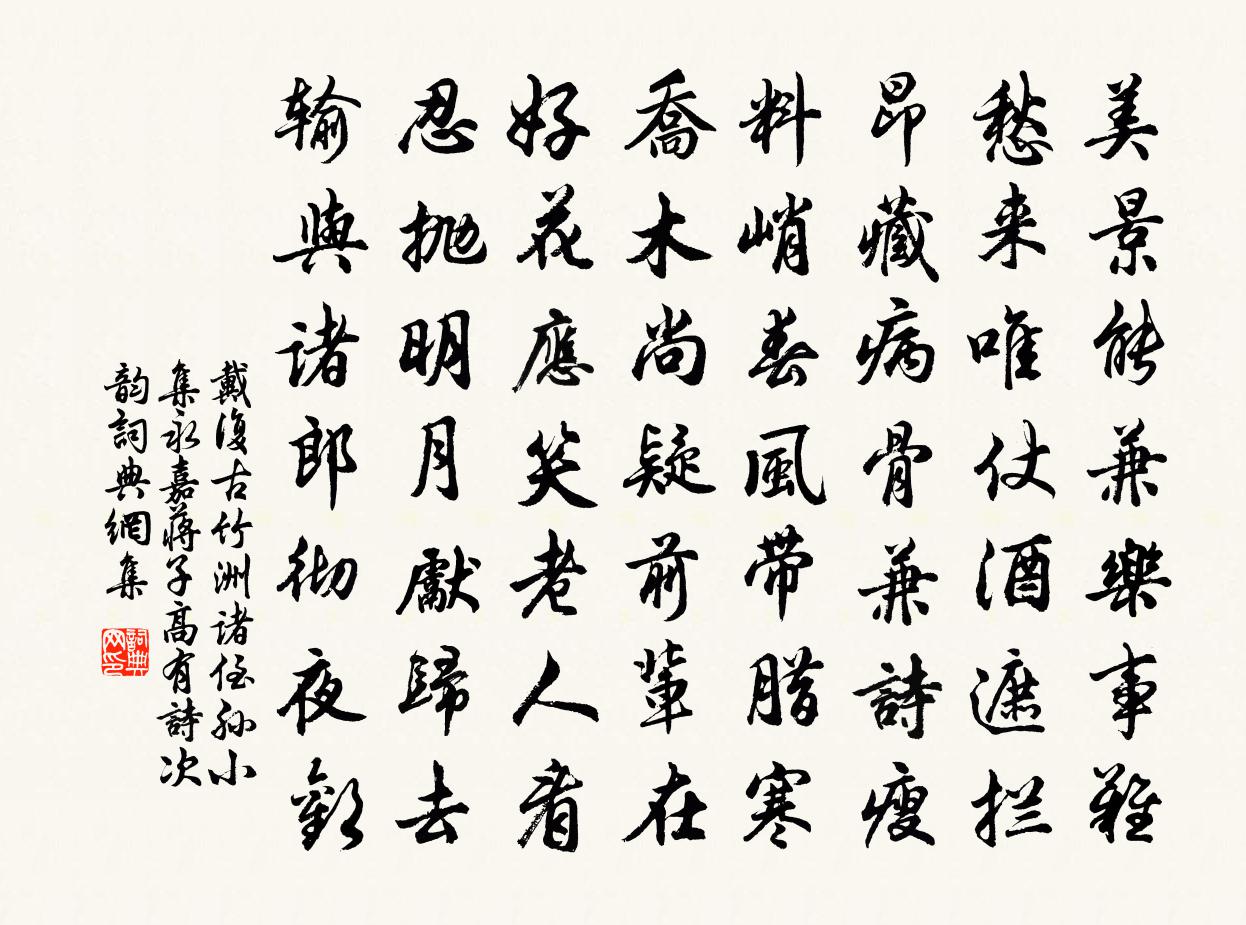 美景能兼樂事難
愁来唯仗酒遮拦
昂藏病骨兼詩瘦
料峭春風帶腊寒
喬木尚疑前輩在
好花應笑老人看
忍抛明月獻歸去
輸與諸郎彻夜歡
戴復古竹洲诸侄孙小
集永嘉蒋子高有詩次
韵詞典網集
詞典网印